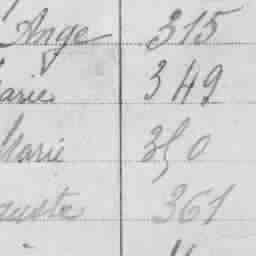 Ange 315
arie 349
Marie 350
guste 361